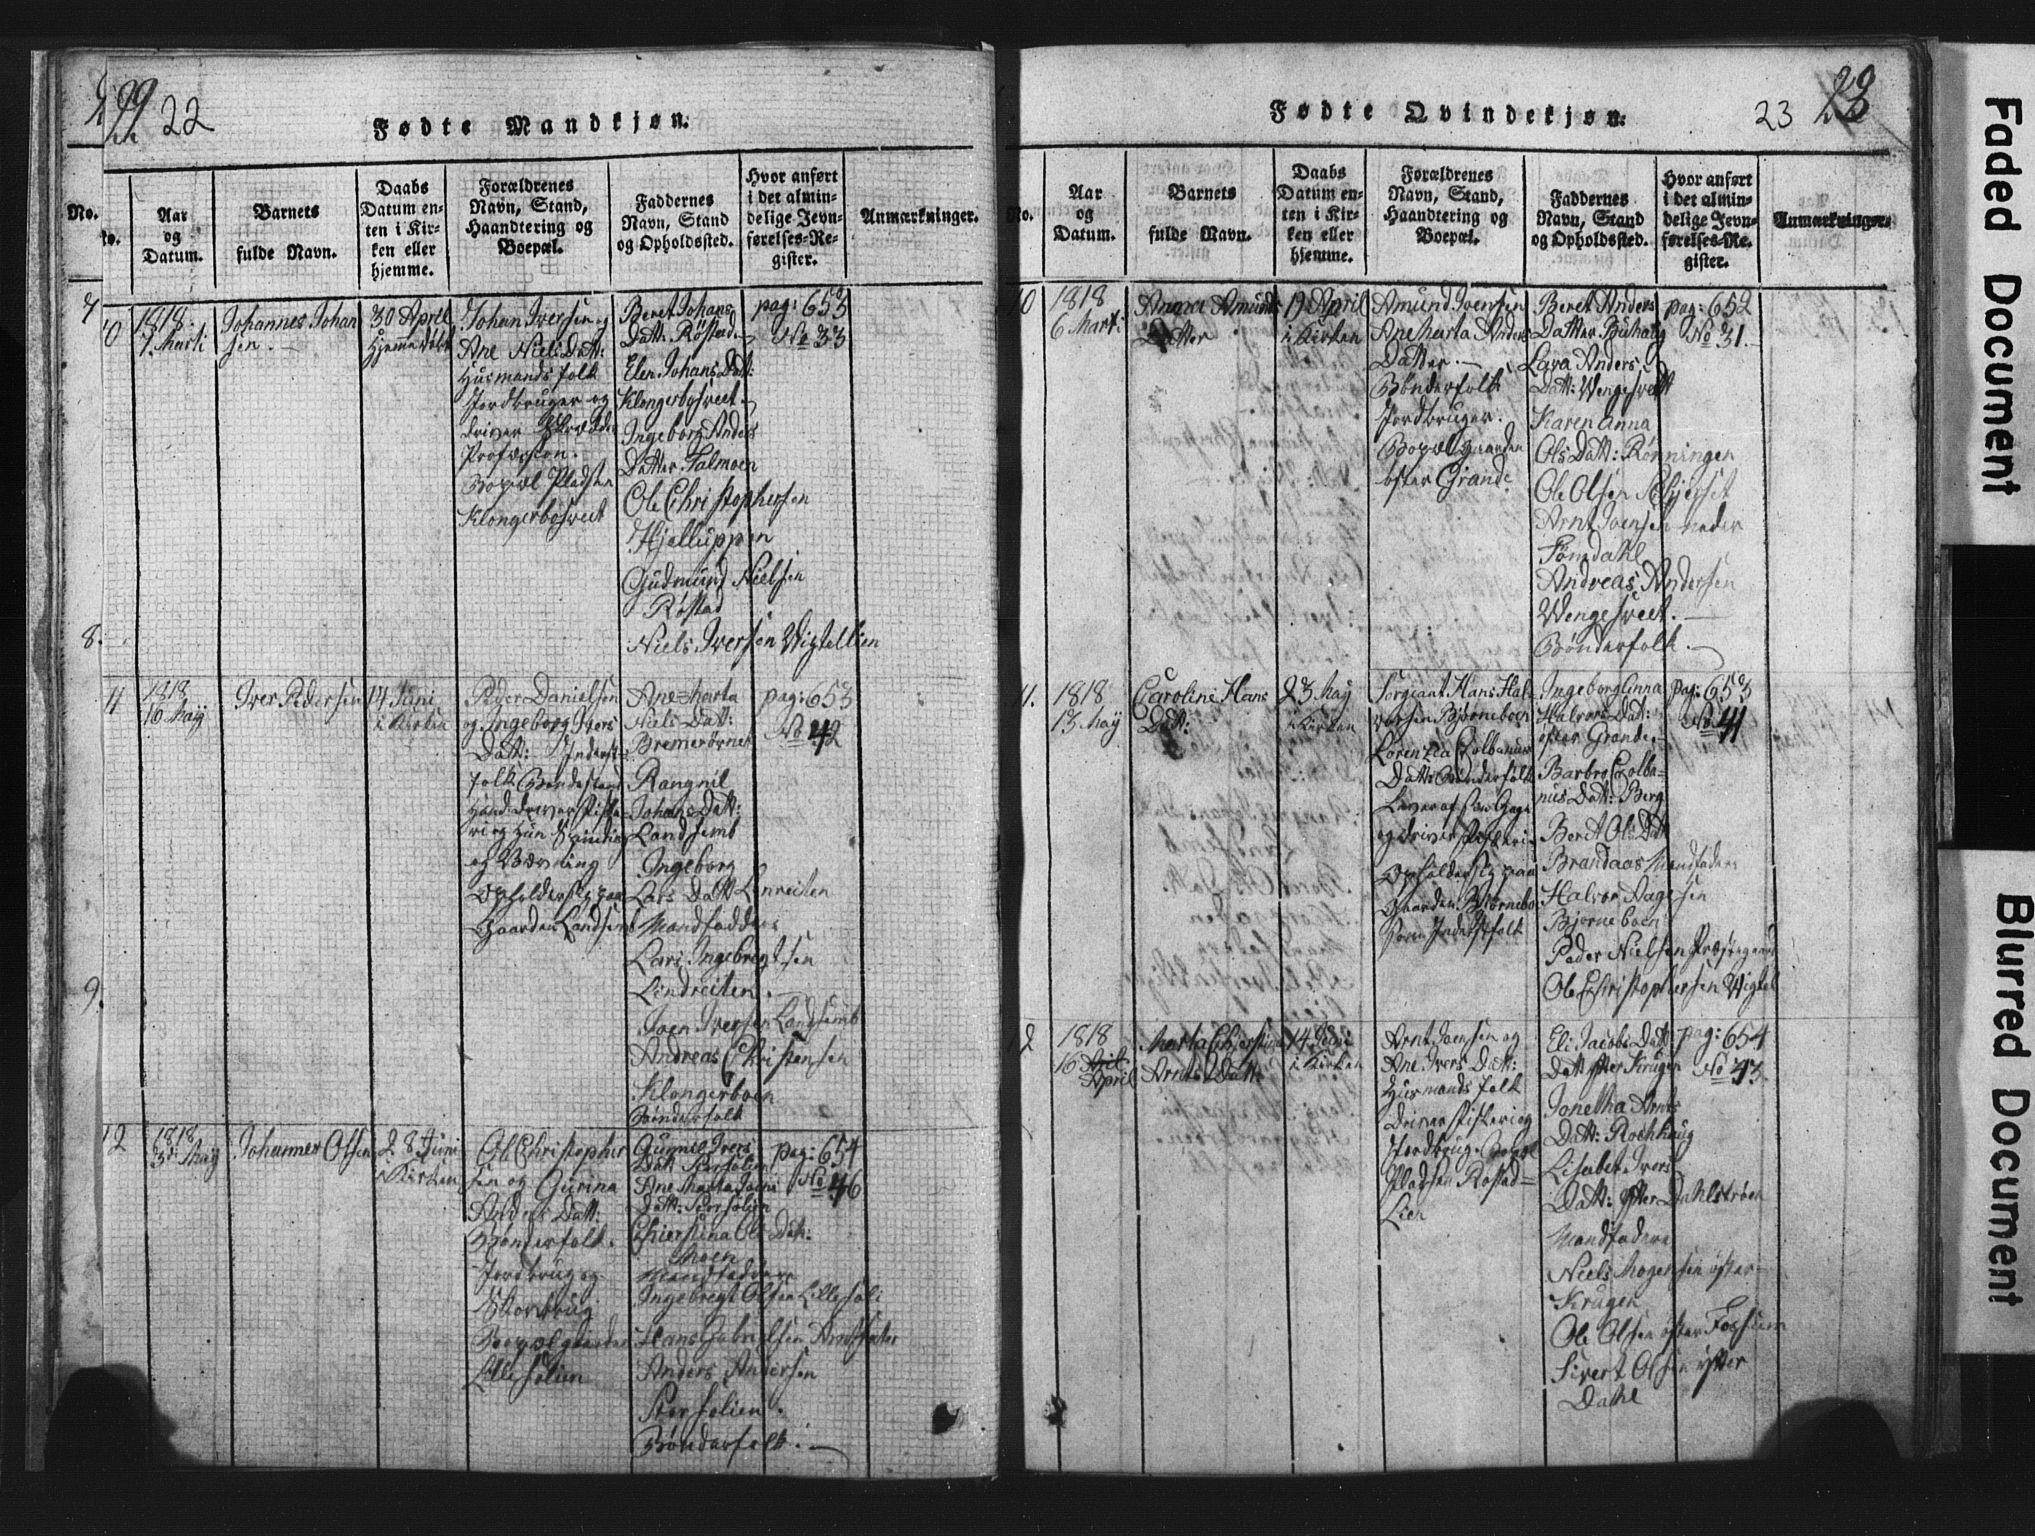 22
Fødte Mandkjøn.
No.
Aar
og
Datum.
Barnets
fulde Navn.
Daabs
Datum en-
ten i Kir-
ken eller
hjemme.
Forældrenes
Navn, Stand,
Haandtering og
Boepæl.
Faddernes
Navn, Stand
og Opholdssted.
Hvor anført
i det almin-
delige Jevn-
førelses-Re-
gister.
Anmærkninger.
7
8.
9.
1818
7 Marti
Johannes Johan
sen.
30 April
Hjemmedøbt
Johan Iversen og
Ane Niels Datt:
Husmands folk
Jordbruger og
driver
Profession.
Bopæl Pladsen
Klongerbøsveet
Beret Johans
Datt: Røstad.
Elen Johans Datt:
Klongerbøsveet.
Ingeborg Anders
Datter Talmoen
Ole Christophersen
Hjelluppen
Gudmund Nielsen
Røstad
Niels Iversen Vigtellien
pag: 653
No 33
11
1818
16 Maÿ
Iver Pedersen
14 Juni
i Kirken
Peder Danielsen
og Ingeborg Ivers
Datt: Inderst
folk Bondestand
og Væveing
Opholder sig paa
Gaarden Landsemb
Ane Marta
Niels Datt:
Bremerørnet
Rangnil
Johans Datt:
Landsemb
Ingeborg
Lars Datt
Mandfaddere
Lars Ingebregtsen
Lindreiten.
Joen Iversen Landsemb
Andreas Christensen
Klongerboen
Bønderfolk
pag: 653
No 42
12
1818
31 Maÿ
Johannes Olsen
28 Juni
i Kirken
Ol Christopher
sen og Gurina
Anders Datt:
Bønderfolk.
Jordbrug og
Skovbrug
Bopæl gaarden
Lillesolien
Gunnil Ivers
Datt Storsolien
Ane Marta Joens
Datt: Storsolien
Chierstina Ols Datt:
Moen
Mandfaddere
Ingebregt Olsen Lillesoli
Hans Gabrielsen
Anders Andersen
Storsolien.
Bønderfolk.
pag: 654
No 46
23
Fødte Qvindekjøn.
No.
Aar
og
Datum.
Barnets
fulde Navn.
Daabs
Datum en-
ten i Kir-
ken eller
hjemme.
Forældrenes
Navn, Stand,
Haandtering og
Boepæl.
Faddernes
Navn, Stand
og Opholdssted.
Hvor anført
i det almin-
delige Jevn-
førelses-Re-
gister.
Anmærkninger.
10
1818
6 Marti
Anna Amunds
Datter
19 April
i Kirken
Amund Joensen
Ane Marta Anders
Datter.
Bønderfolk
Jordbruger.
Bopæl Gaarden
øfter Grande
Beret Anders
Datter Buhaug
Lara Anders
Datt: Wengesvedt
Karen Anna
Ols Datt: Rønningen
Ole Olsen
Arnt Joensen neder
Fømdahl
Andreas Andersen
Wengesveet.
Bønderfolk.
pag: 652
No 31.
11.
1818
13 Maÿ
Caroline Hans
Datt:
23 Maÿ
i Kirken
Sergeant Hans Hal-
vorsen Bjørneboen
Lorenzia Colbanus
Datt: Bønderfolk
Lever af
Opholder sig paa
Gaarden Bjørnebo
som Inderstfolk
Ingeborg Anna
Halvors Dat:
øfter Grande.
Barbro Colba-
nus Datt: Berg
Berit Ols Dat
Brandaas Mandfadere
Halvor Aagesen
Bjørneboen
Peder Nielsen Præstegaard
Ole Christophersen Vigtel
pag: 653
No 41
12
1818
16 April
Marta Chierstina
Arnts Datt:
14 Juni
i Kirken
Arnt Joensen og
Ane Ivers Datt:
Husmands folk
Driver fiskeri og
Jordbrug. Bopæl
Pladsen Røstad-
Lien
Eli Jacobs Datt
Datt øfter Krugen
Jonetha Arnts
Datt: Rochhaug
Lisabet Ivers
Datt: øfter Dahlstrøen
Mandfadere
Niels Mogensen øfter
Krugen
Ole Olsen øfter Fossum
Sivert Olsen øfter
Dahl
pag: 654
No 43
Faded Document
Blurred Document